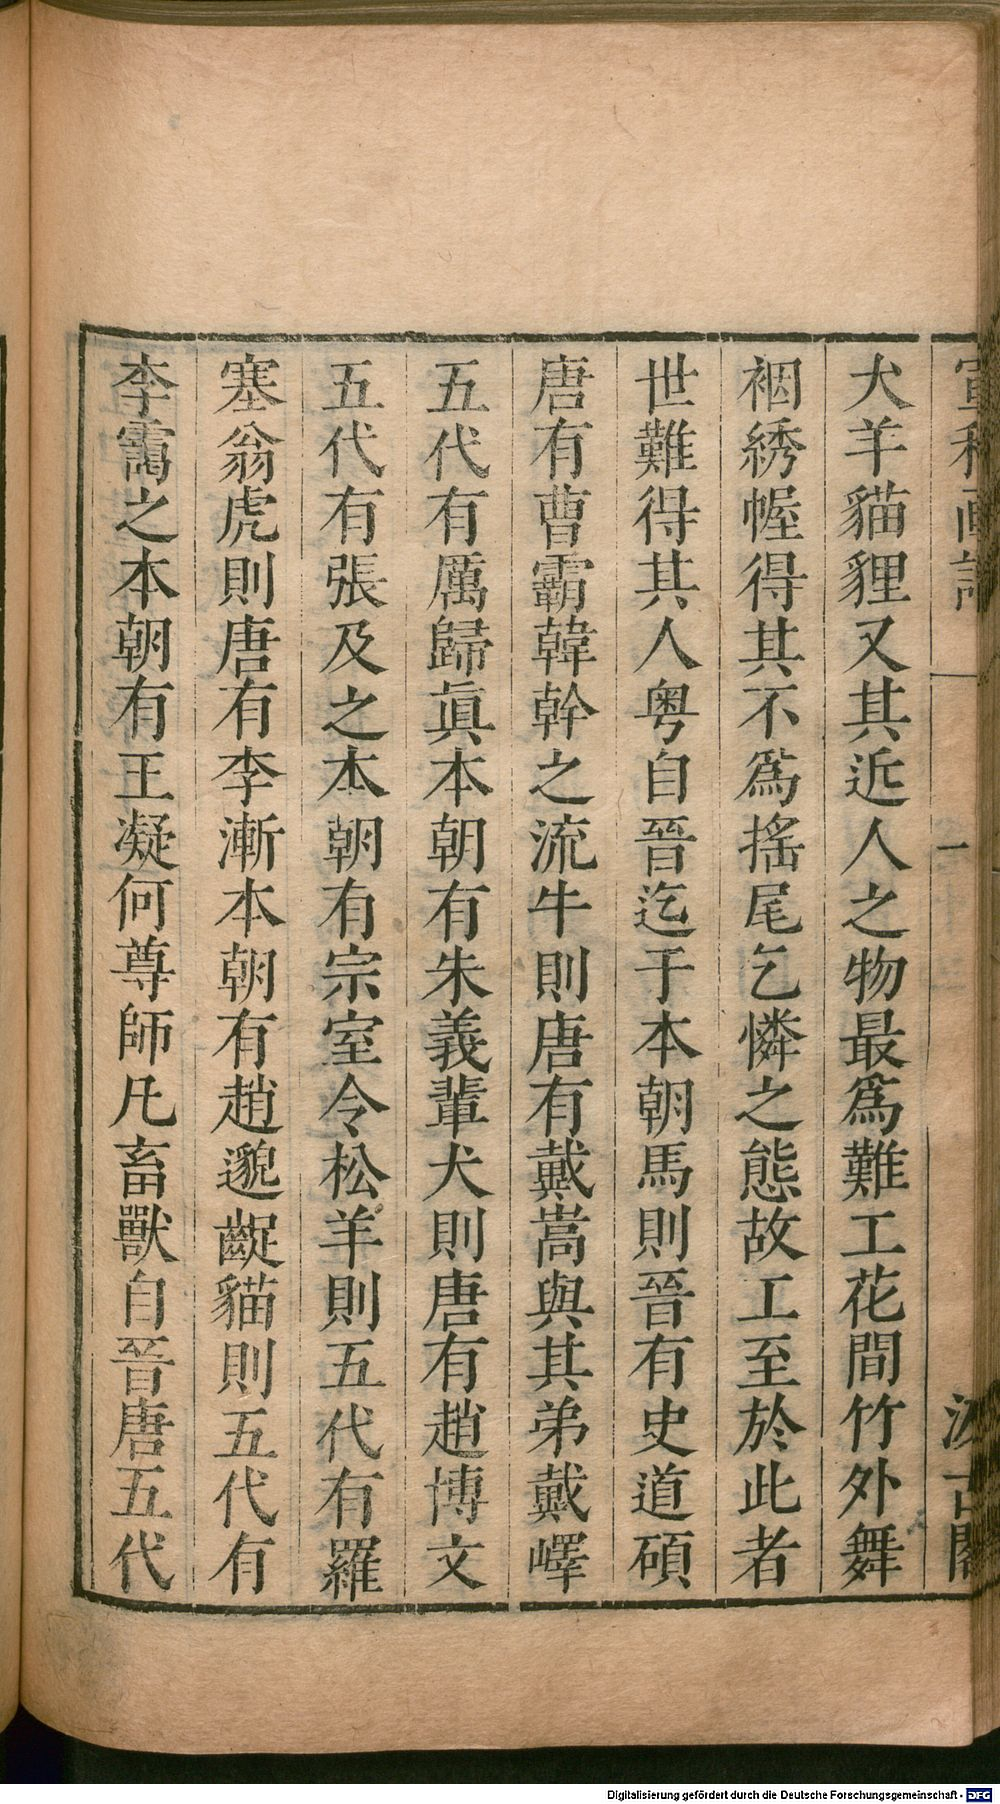 犬羊貓狸又其近人之物最爲難工花間竹外舞
裀綉幄得其不爲搖尾乞憐之態故工至於此者
世難得其人粤自晉迄于本朝馬則晉有史道碩
唐有曹霸韓幹之流牛則唐有戴嵩與其弟戴嶧
五代有厲歸眞本朝有朱義輩犬則唐有趙博文
五代有張及之本朝有宗室令松羊則五代有羅
塞翁虎則唐有李漸本朝有趙邈齪貓則五代有
李靄之本朝有王凝何尊師凡畜獸自晉唐五代
Digitalisierung gefördert durch die Deutsche Forschungsgemeinschaft - DFG